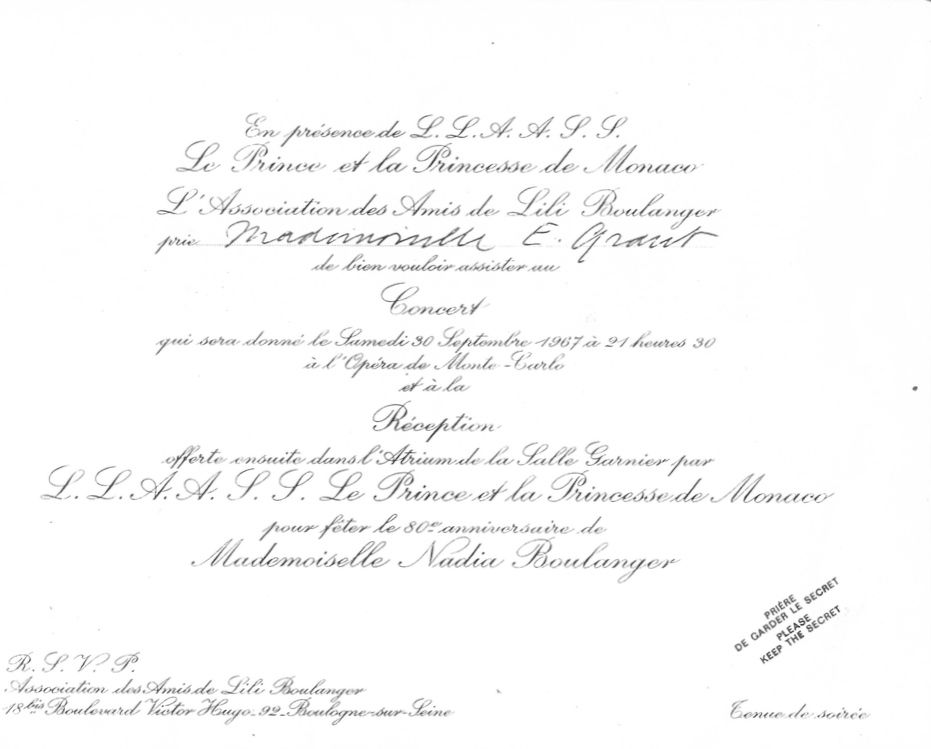 En présence de L. L. A. A. S. S.
Le Prince et la Princesse de Monaco
L'Association des Amis de Lili Boulanger
prie Mademoiselle E. Grant
de bien vouloir assister au
Concert
qui sera donné le Samedi 30 Septembre 1967 à 21 heures 30
à l'Opéra de Monte-Carlo
et à la
Réception
offerte ensuite dans l'Atrium de la Salle Garnier par
L. L. A. A. S. S. Le Prince et la Princesse de Monaco
pour fêter le 80e anniversaire de
Mademoiselle Nadia Boulanger
PRIÈRE
DE GARDER LE SECRET
PLEASE
KEEP THE SECRET
R. S. V. P.
Association des Amis de Lili Boulanger
18bis Boulevard Victor Hugo_92_Boulogne-sur-Seine
Tenue de soirée